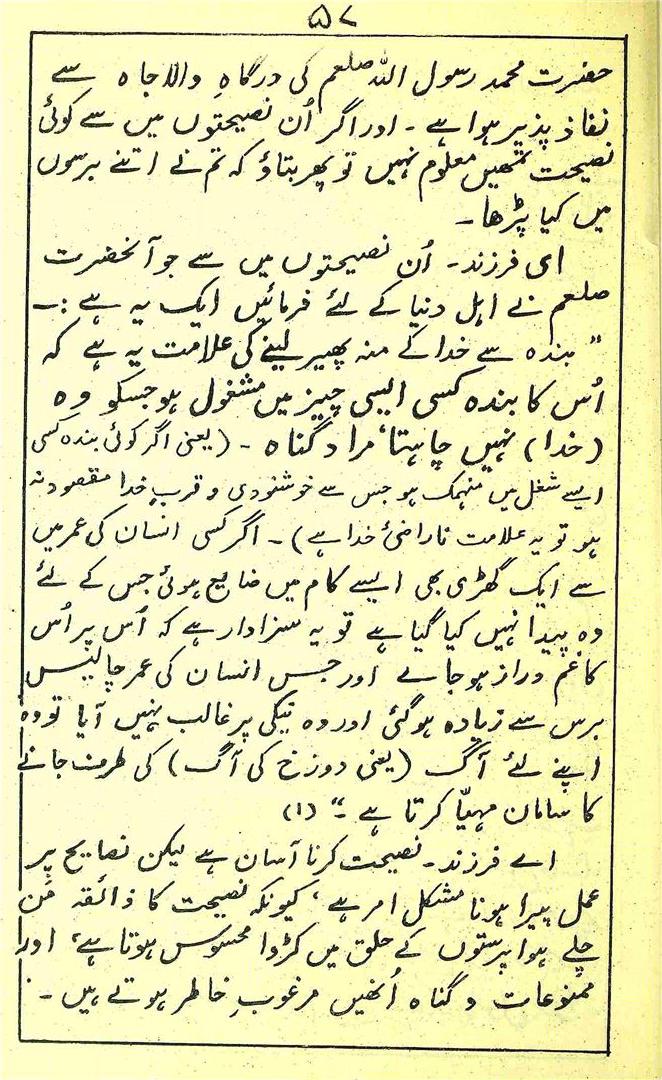 ۵۷
حضرت محمد رسول اللہ صلعم کی درگاہِ والا جاہ سے
نفاذ پذیر ہوا ہے ۔ اور اگر اُن نصیحتوں میں سے کوئی
نصیحت تمھیں معلوم نہیں تو پھر بتاؤ کہ تم نے اتنے برسوں
میں کیا پڑھا۔
ای فرزند۔ اُن نصیحتوں میں سے جو آنحضرت
صلعم نے اہل دنیا کے لئے فرمائیں ایک یہ ہے :۔
" بندہ سے خدا کے منہ پھیر لینے کی علامت یہ ہے کہ
اُس کا بندہ کسی ایسی چیز میں مشغول ہو جسکو وہ
(خدا) نہیں چاہتا، مراد گناہ ۔ (یعنی اگر کوئی بندہ کسی
ایسے شغل میں منہمک ہو جس سے خوشنودی و قربِ خدا مقصود نہ
ہو تو یہ علامت ناراضئ خدا ہے) ۔ اگر کسی انسان کی عمر میں
سے ایک گھڑی بھی ایسے کام میں ضایع ہوئی جس کے لئے
وہ پیدا نہیں کیا گیا ہے تو یہ سزادار ہے کہ اُس پر اُس
کا غم دراز ہو جائے اور جس انسان کی عمر چالیس
برس سے زیادہ ہو گئی اور وہ نیکی پر غالب نہیں آیا تو وہ
اپنے لئے آگ (یعنی دوزخ کی آگ) کی طرف جانے
کا سامان مہیّا کرتا ہے ۔" (۱)
اے فرزند۔ نصیحت کرنا آسان ہے لیکن نصایح پر
عمل پیرا ہونا مشکل امر ہے ، کیونکہ نصیحت کا ذائقہ مَن
چلے ہوا پرستوں کے حلق میں کڑوا محسوس ہوتا ہے، اور
ممنوعات و گناہ اُنھیں مرغوبِ خاطر ہوتے ہیں ۔